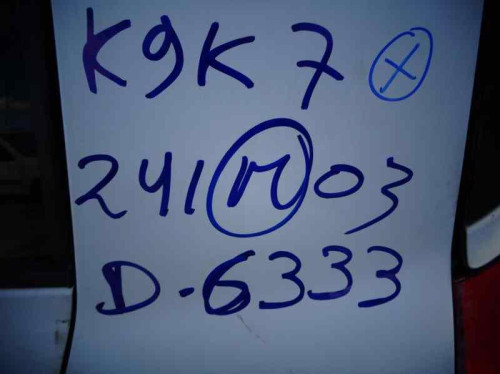 K9K 7 X
241M03
D-6333